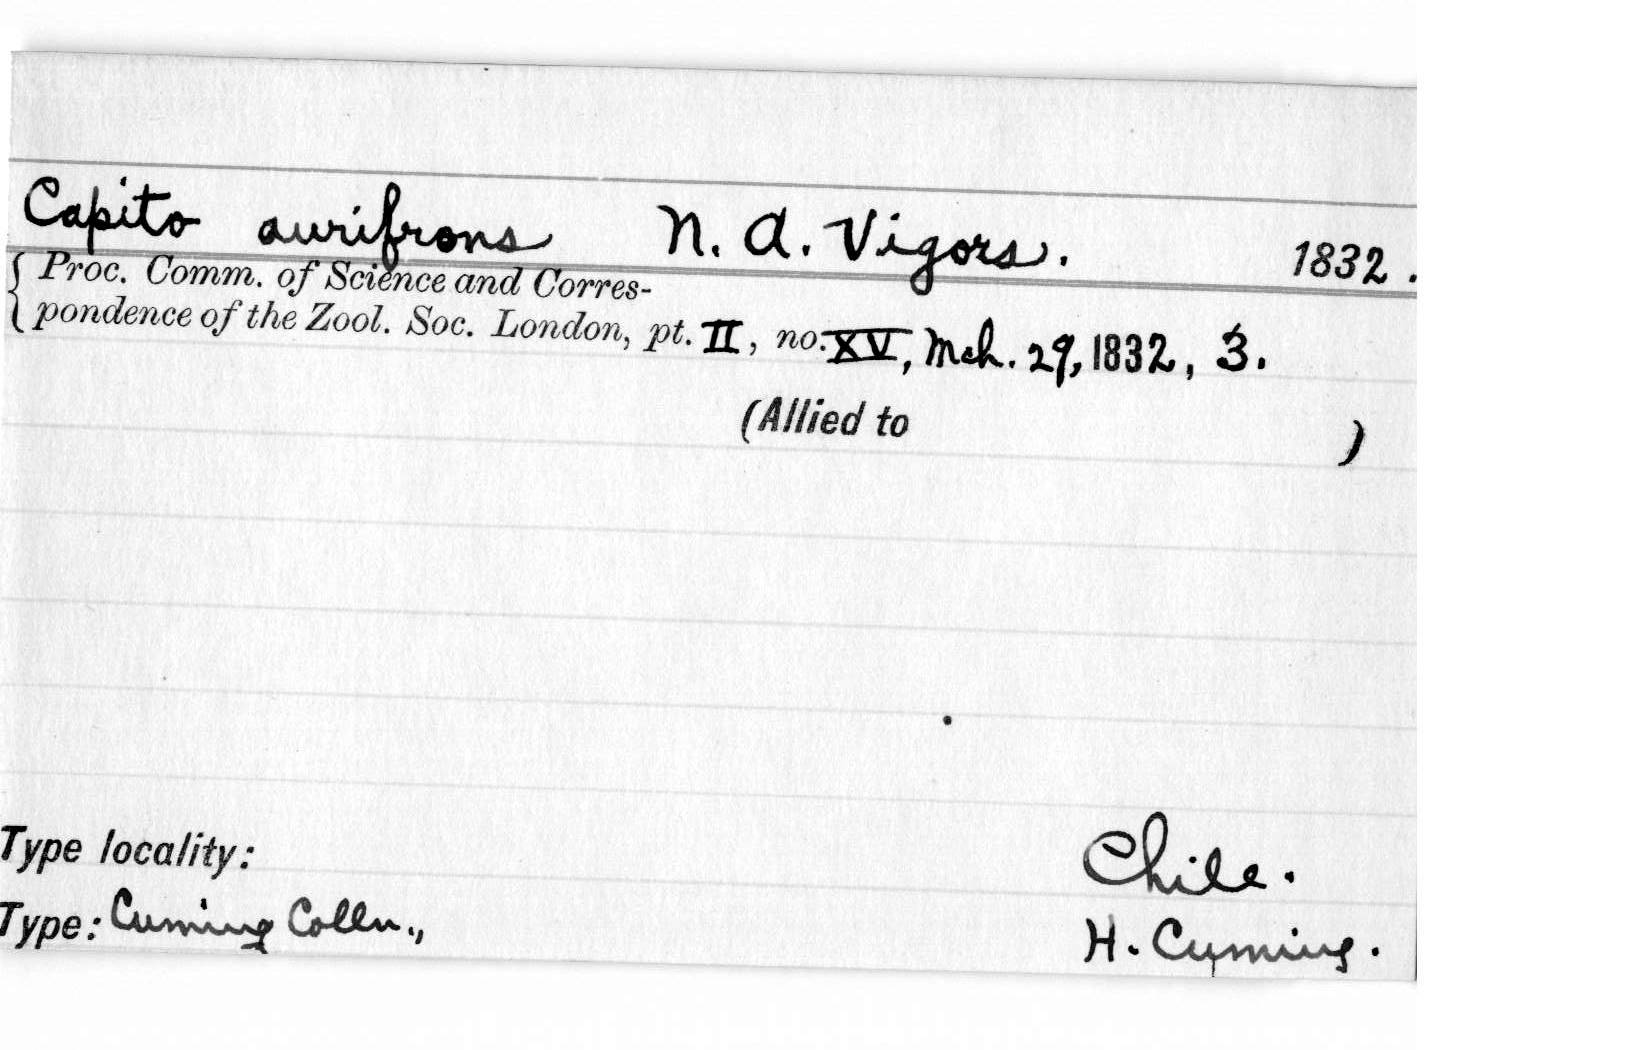 Capito aurifrons N. A. Vigors. 1832.
Proc. Comm. of Science and Corres-
pondence of the Zool. Soc. London, pt. II, no. XV, Mch. 29, 1832, 3.
(Allied to )
Type locality: Chile.
Type: Cuming Colln., H. Cuming.